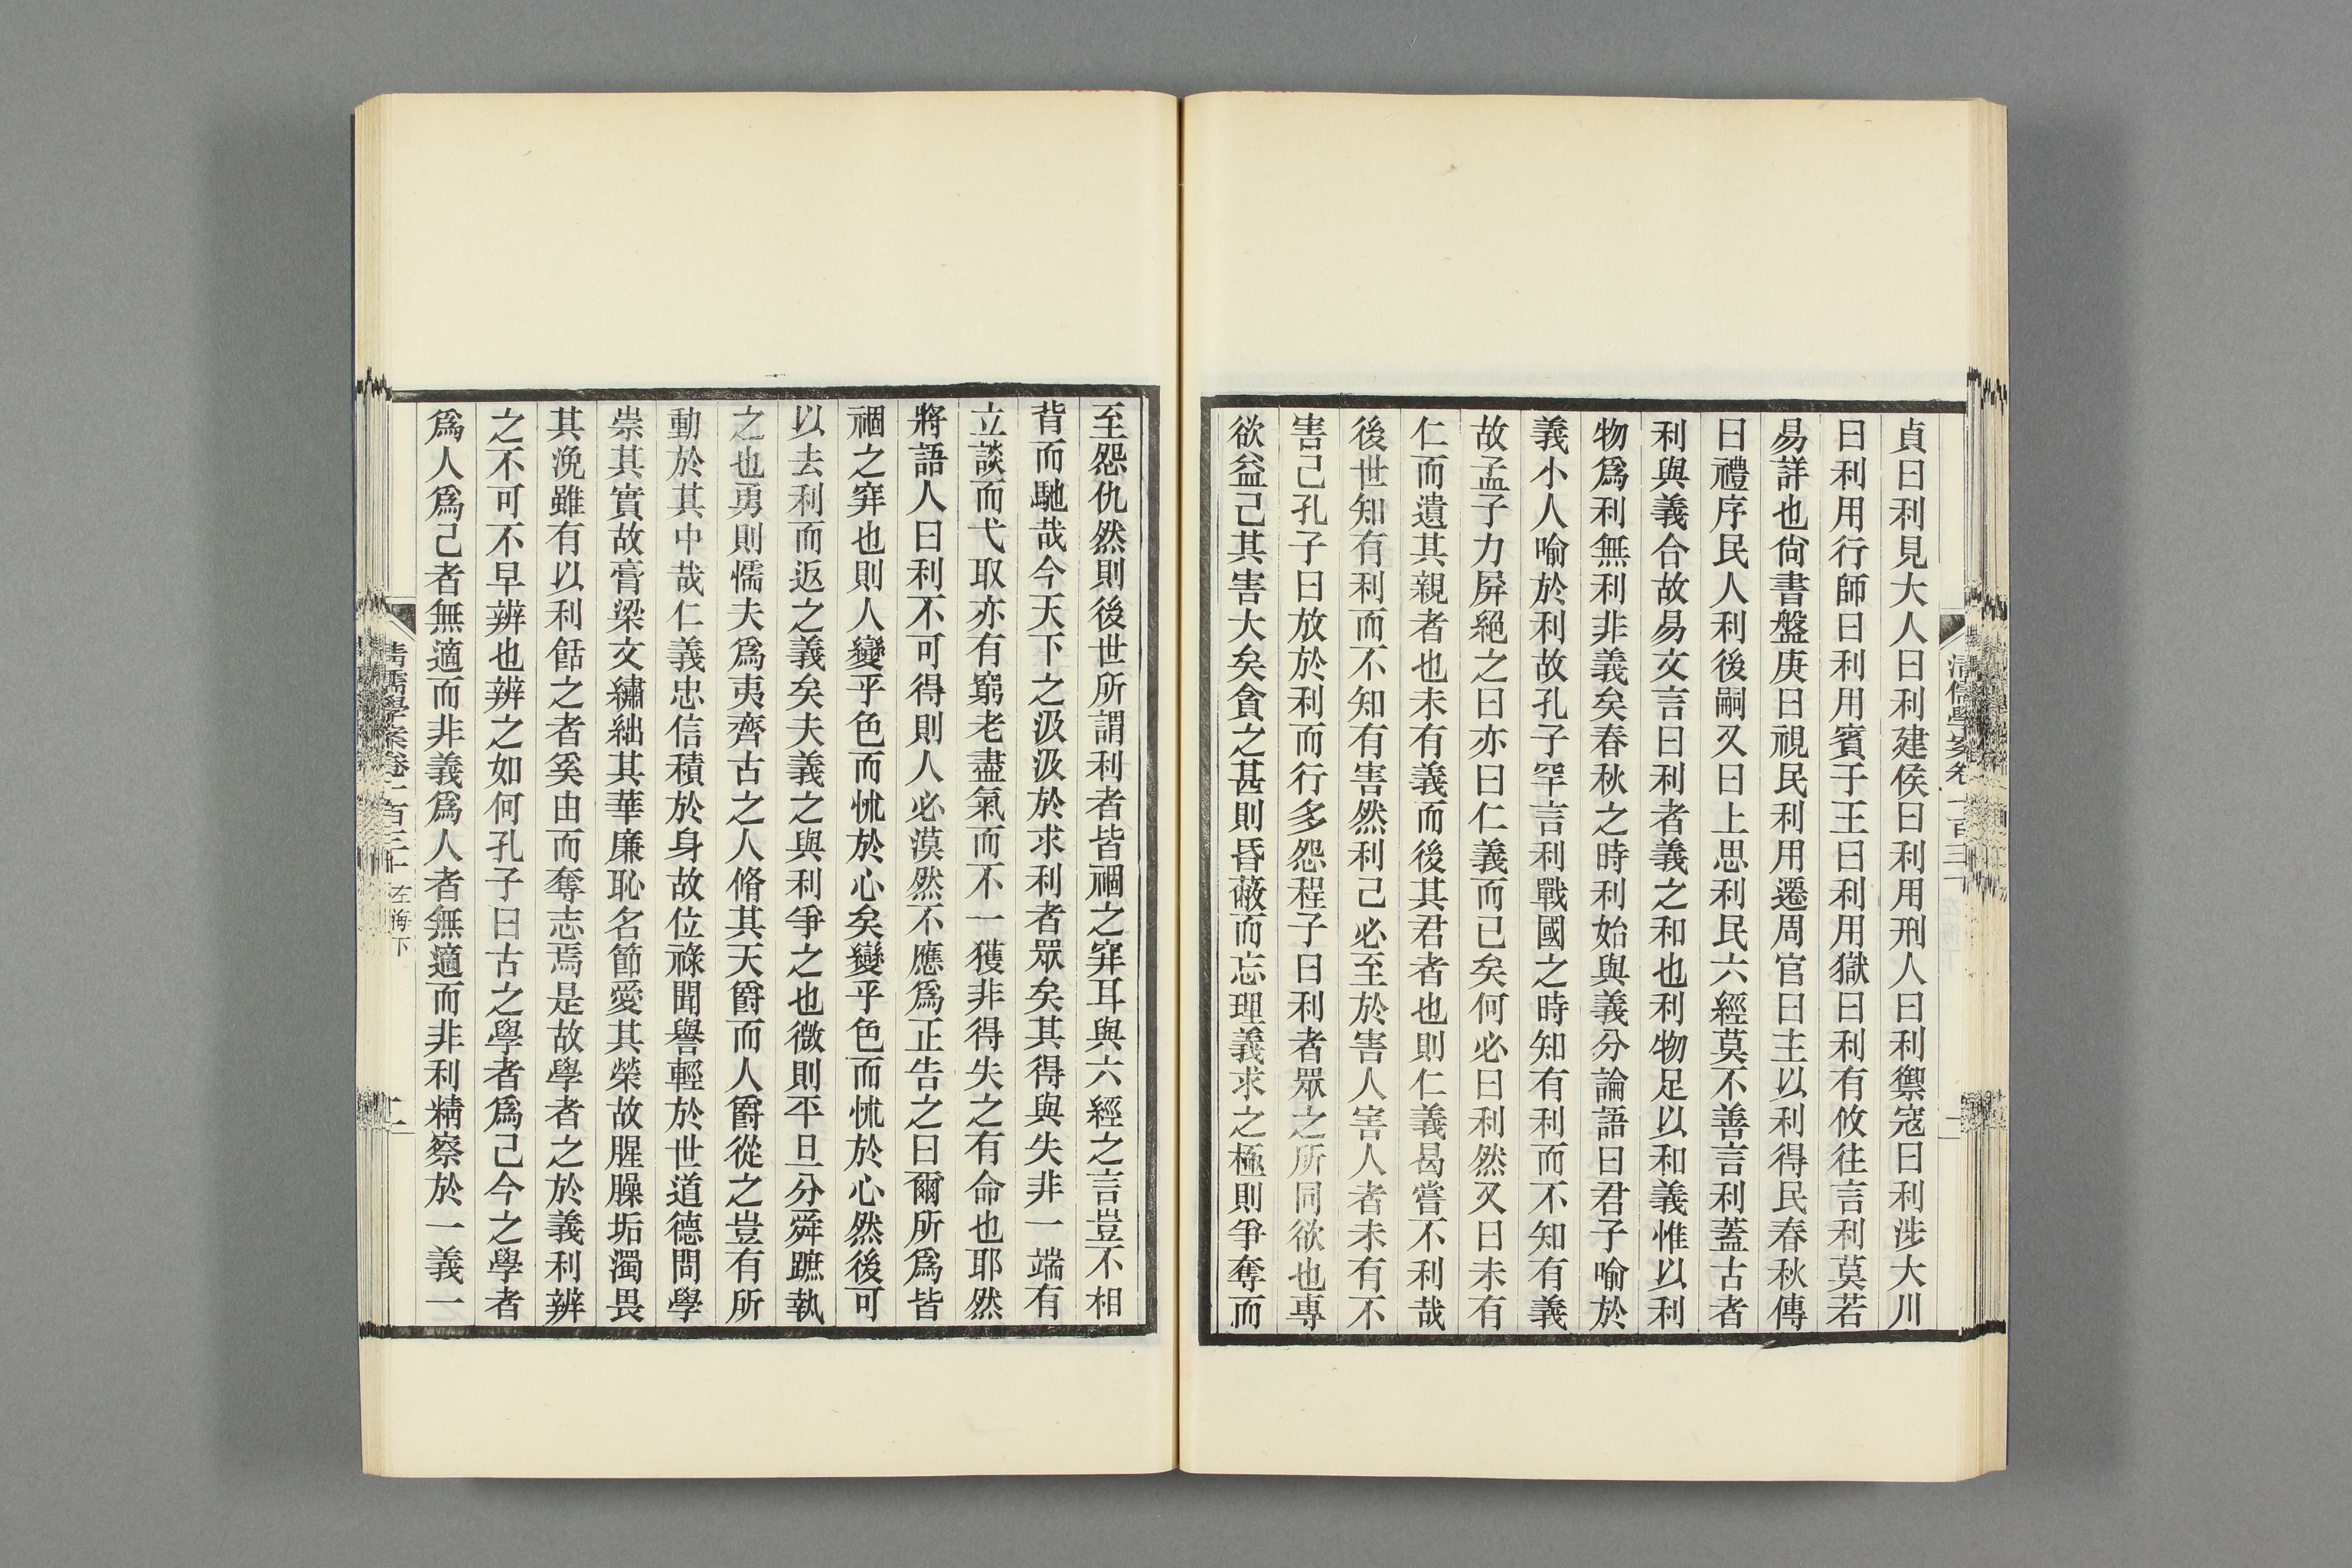 貞曰利見大人曰利建侯曰利用刑人曰利禦寇曰利涉大川
曰利用行師曰利用賓于王曰利用獄曰利有攸往言利莫若
易詳也尙書盤庚曰視民利用遷周官曰主以利得民春秋傳
曰禮序民人利後嗣又曰上思利民六經莫不善言利蓋古者
利與義合故易文言曰利者義之和也利物足以和義惟以利
物爲利無利非義矣春秋之時利始與義分論語曰君子喻於
義小人喻於利故孔子罕言利戰國之時知有利而不知有義
故孟子力屏絕之曰亦曰仁義而已矣何必曰利然又曰未有
仁而遺其親者也未有義而後其君者也則仁義曷嘗不利哉
後世知有利而不知有害然利己必至於害人害人者未有不
害己孔子曰放於利而行多怨程子曰利者眾之所同欲也專
欲益己其害大矣貪之甚則昏蔽而忘理義求之極則爭奪而
至怨仇然則後世所謂利者皆禍之穽耳與六經之言豈不相
背而馳哉今天下之汲汲於求利者眾矣其得與失非一端有
立談而弋取亦有窮老盡氣而不一獲非得失之有命也耶然
將語人曰利不可得則人必漠然不應爲正告之曰爾所爲皆
禍之穽也則人變乎色而怵於心矣變乎色而怵於心然後可
以去利而返之義矣夫義之與利爭之也微則平旦分舜蹠執
之也勇則懦夫爲夷齊古之人脩其天爵而人爵從之豈有所
動於其中哉仁義忠信積於身故位祿聞譽輕於世道德問學
崇其實故膏粱文繡絀其華廉恥名節愛其榮故腥臊垢濁畏
其浼雖有以利餂之者奚由而奪志焉是故學者之於義利辨
之不可不早辨也辨之如何孔子曰古之學者爲己今之學者
爲人爲己者無適而非義爲人者無適而非利精察於一義一
清儒學案卷一百三十 左海下